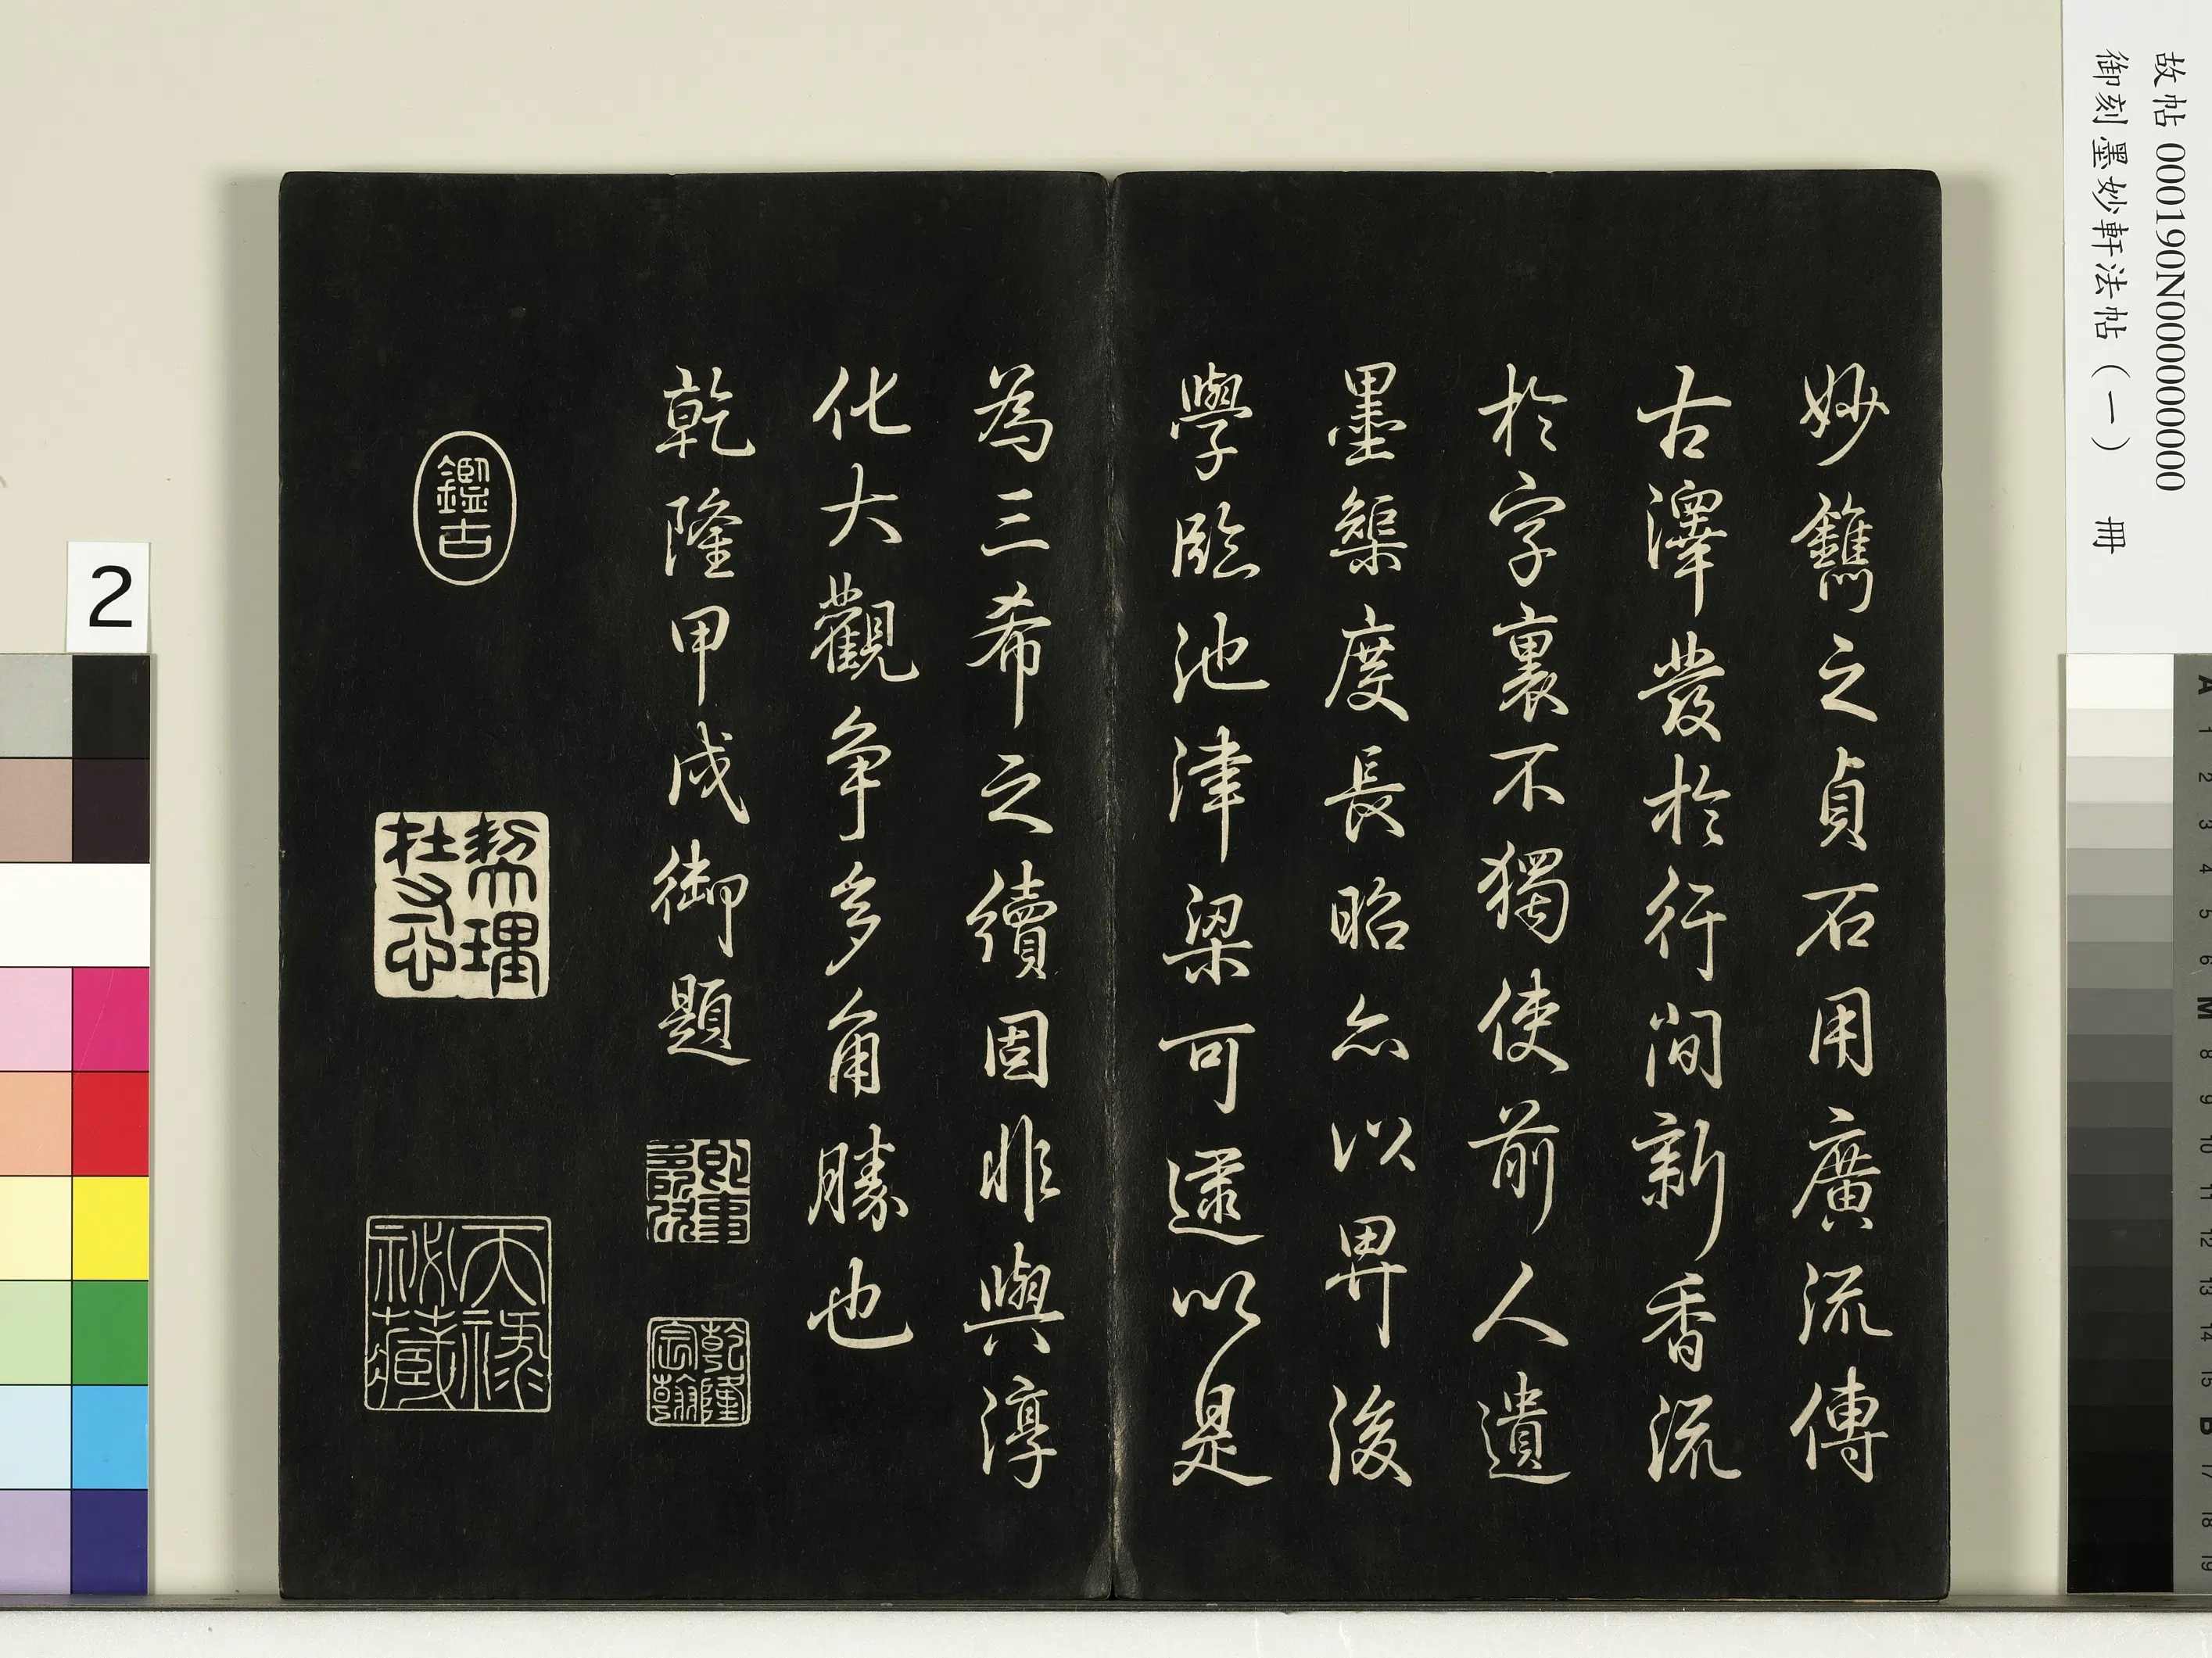 故帖 000190N000000000
御刻墨妙軒法帖（一） 冊
妙鐫之貞石用廣流傳
古澤發於行間新香流
於字裏不獨使前人遺
墨榘度長昭亦以畀後
學臨池津梁可逮以是
為三希之續固非與淳
化大觀爭多角勝也
乾隆甲戌御題
即事多所欣
乾隆宸翰
鑑古
天祿祕藏
2